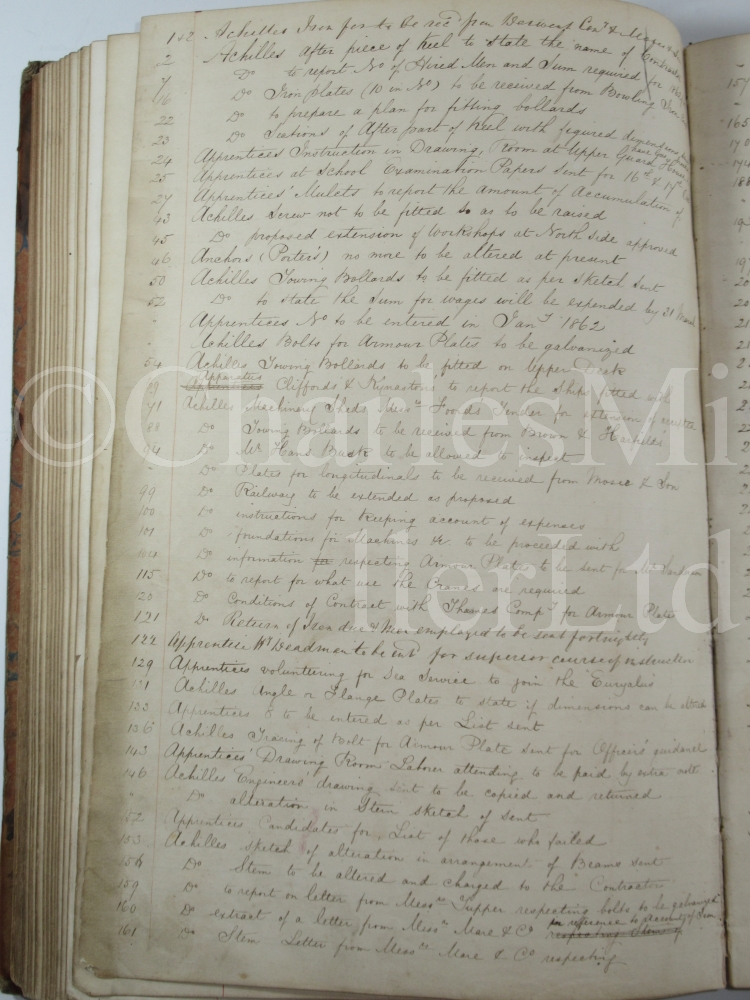 1x2 Achilles Iron for to be rec'd from Derwent Con.y &
2 Achilles after piece of Keel to State the name of Contractor
7 Do to report No of Hired Men and Sum required for
16 Do Iron plates (10 in No) to be received from Bowling Iron
22 Do to prepare a plan for fitting bollards
23 Do Sections of After part of Keel with figured dimensions
24 Apprentices Instruction in Drawing, Room at Upper Guard House
25 Apprentices at School Examination Papers sent for 16th & 17th
27 Apprentices' Mulcts to report the amount of Accumulation of
43 Achilles Screw not to be fitted so as to be raised
45 Do proposed extension of Workshops at North side approved
46 Anchors (Porter's) no more to be altered at present
50 Achilles Towing Bollards to be fitted as per Sketch sent
52 Do to state the Sum for wages will be expended by 31 March
" Apprentices No to be entered in Jany 1862
- Achilles Bolts for Armour Plates to be galvanized
54 Achilles Towing Bollards to be fitted on Upper Deck
59 Apparatus Cliffords & Kynastons to report the Ships fitted with
71 Achilles Machinery Sheds Messrs Fords Tender for extension of
88 Do Towing Bollards to be received from Brown & Harfields
94 Do Mr Hans Busk to be allowed to inspect
- Do Plates for longitudinals to be received from & Son
99 Do Railway to be extended as proposed
100 Do instructions for keeping account of expenses
101 Do foundations for Machines &c to be proceeded with
104 Do information for respecting Armour Plates to be sent for
115 Do to report for what use the Cranes are required
20 Do Conditions of Contract with Thames Compy for Armour Plates
121 Do Return of Iron due & Men employed to be sent fortnightly
122 Apprentice Wm Deadman to be ent'd for superior course of instruction
129 Apprentices volunteering for Sea Service to join the "Euryalus"
131 Achilles Angle or Flange Plates to state if dimensions can be
133 Apprentices 8 to be entered as per List sent
136 Achilles Tracing of Bolt for Armour Plate sent for Officers' guidance
143 Apprentices' Drawing Room Laborer attending to be paid by extra
146 Achilles Engineers' drawing sent to be copied and returned
" Do alteration in Stern sketch of sent
152 Apprentices Candidates for, List of those who failed
153 Achilles Sketch of alteration in arrangement of Beams sent
156 Do Stem to be altered and charged to the Contractors
159 Do to report on letter from Messrs Tupper respecting bolts to be galvanized
160 Do extract of a letter from Messrs Mare & Co in reference to
161 Do Stem Letter from Messrs Mare & Co respecting
157
165
170
174
188
©CharlesMi
llerLtd